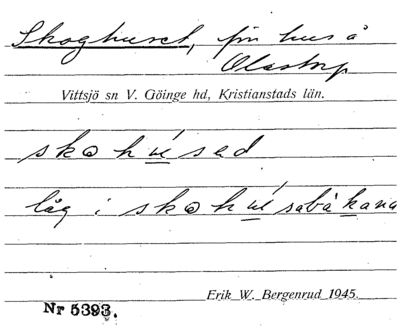 Skoghuset, fin hus å
Olastorp
Vittsjö sn V. Göinge hd, Kristianstads län.
skohúsed
låg i skohúsabákana
Erik W. Bergenrud 1945.
Nr 5393.